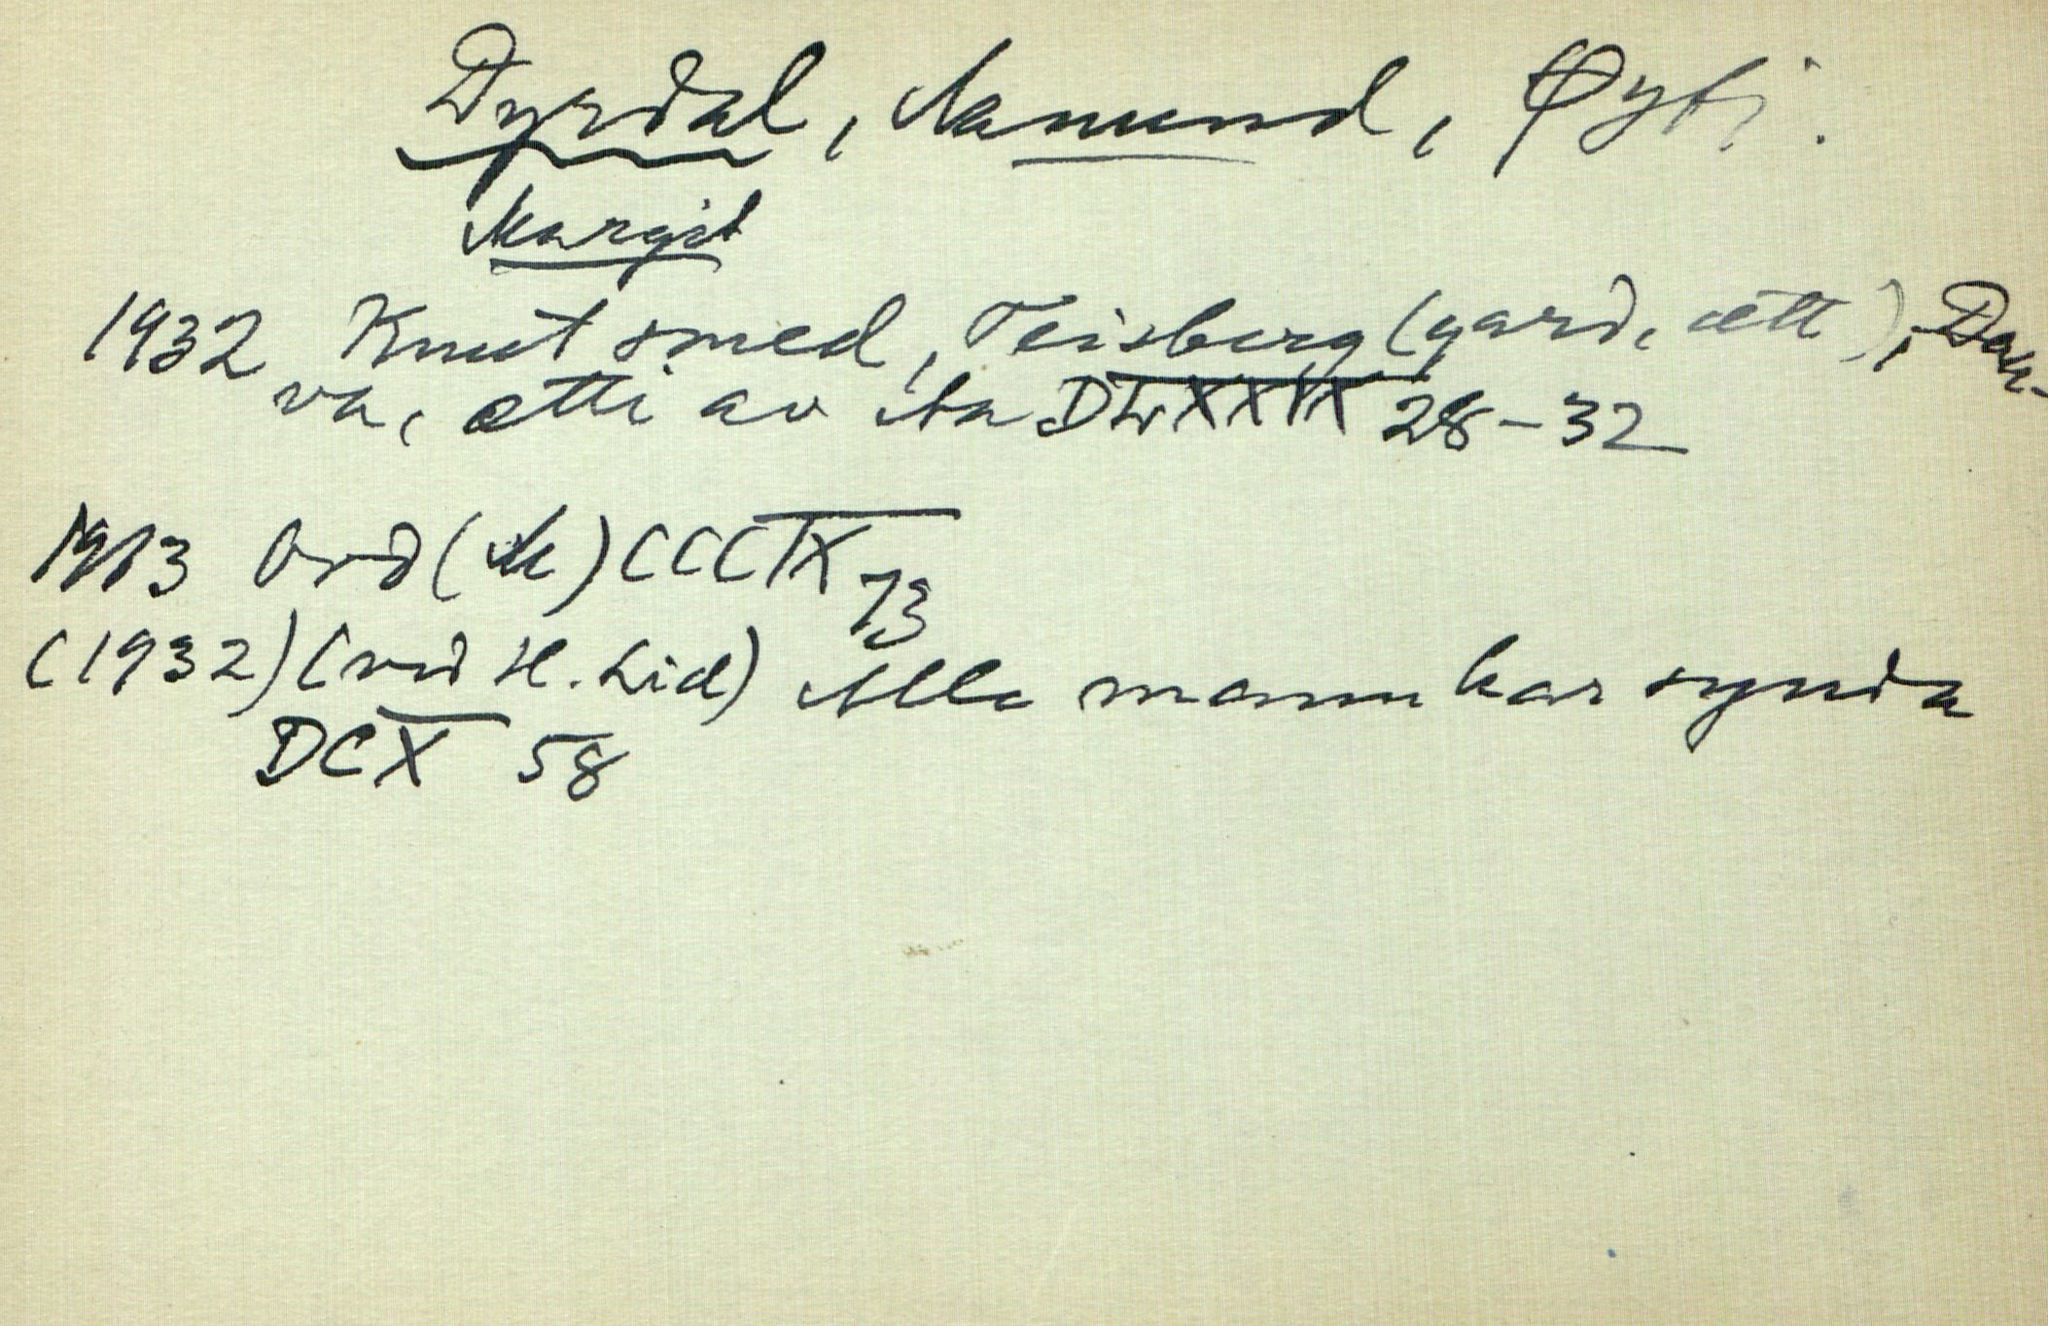 Dyrdal, Aamund, Øyfj.
Margit
1932 Knut smed, Teisberg (gard, ætt), Dan-
va, ætti av Aa DLXXIX 28-32
1913 Ord (M) CCCIX 73
(1932) (ved H. Lid) Alle mann har synda
DCX 58